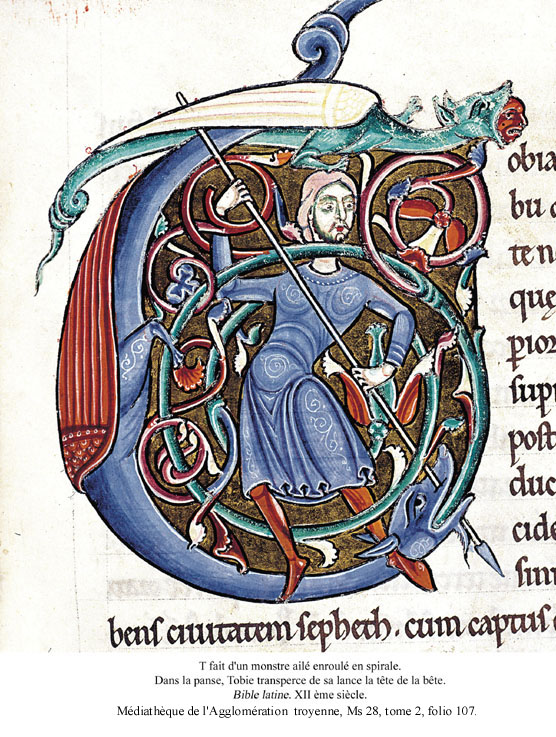 obia
bu
te n
quę
ꝑior
sup
post
duc
cide
sini
bens ciuitatem sepheth. cum captus
T fait d'un monstre ailé enroulé en spirale.
Dans la panse, Tobie transperce de sa lance la tête de la bête.
Bible latine. XII ème siècle.
Médiathèque de l'Agglomération troyenne, Ms 28, tome 2, folio 107.